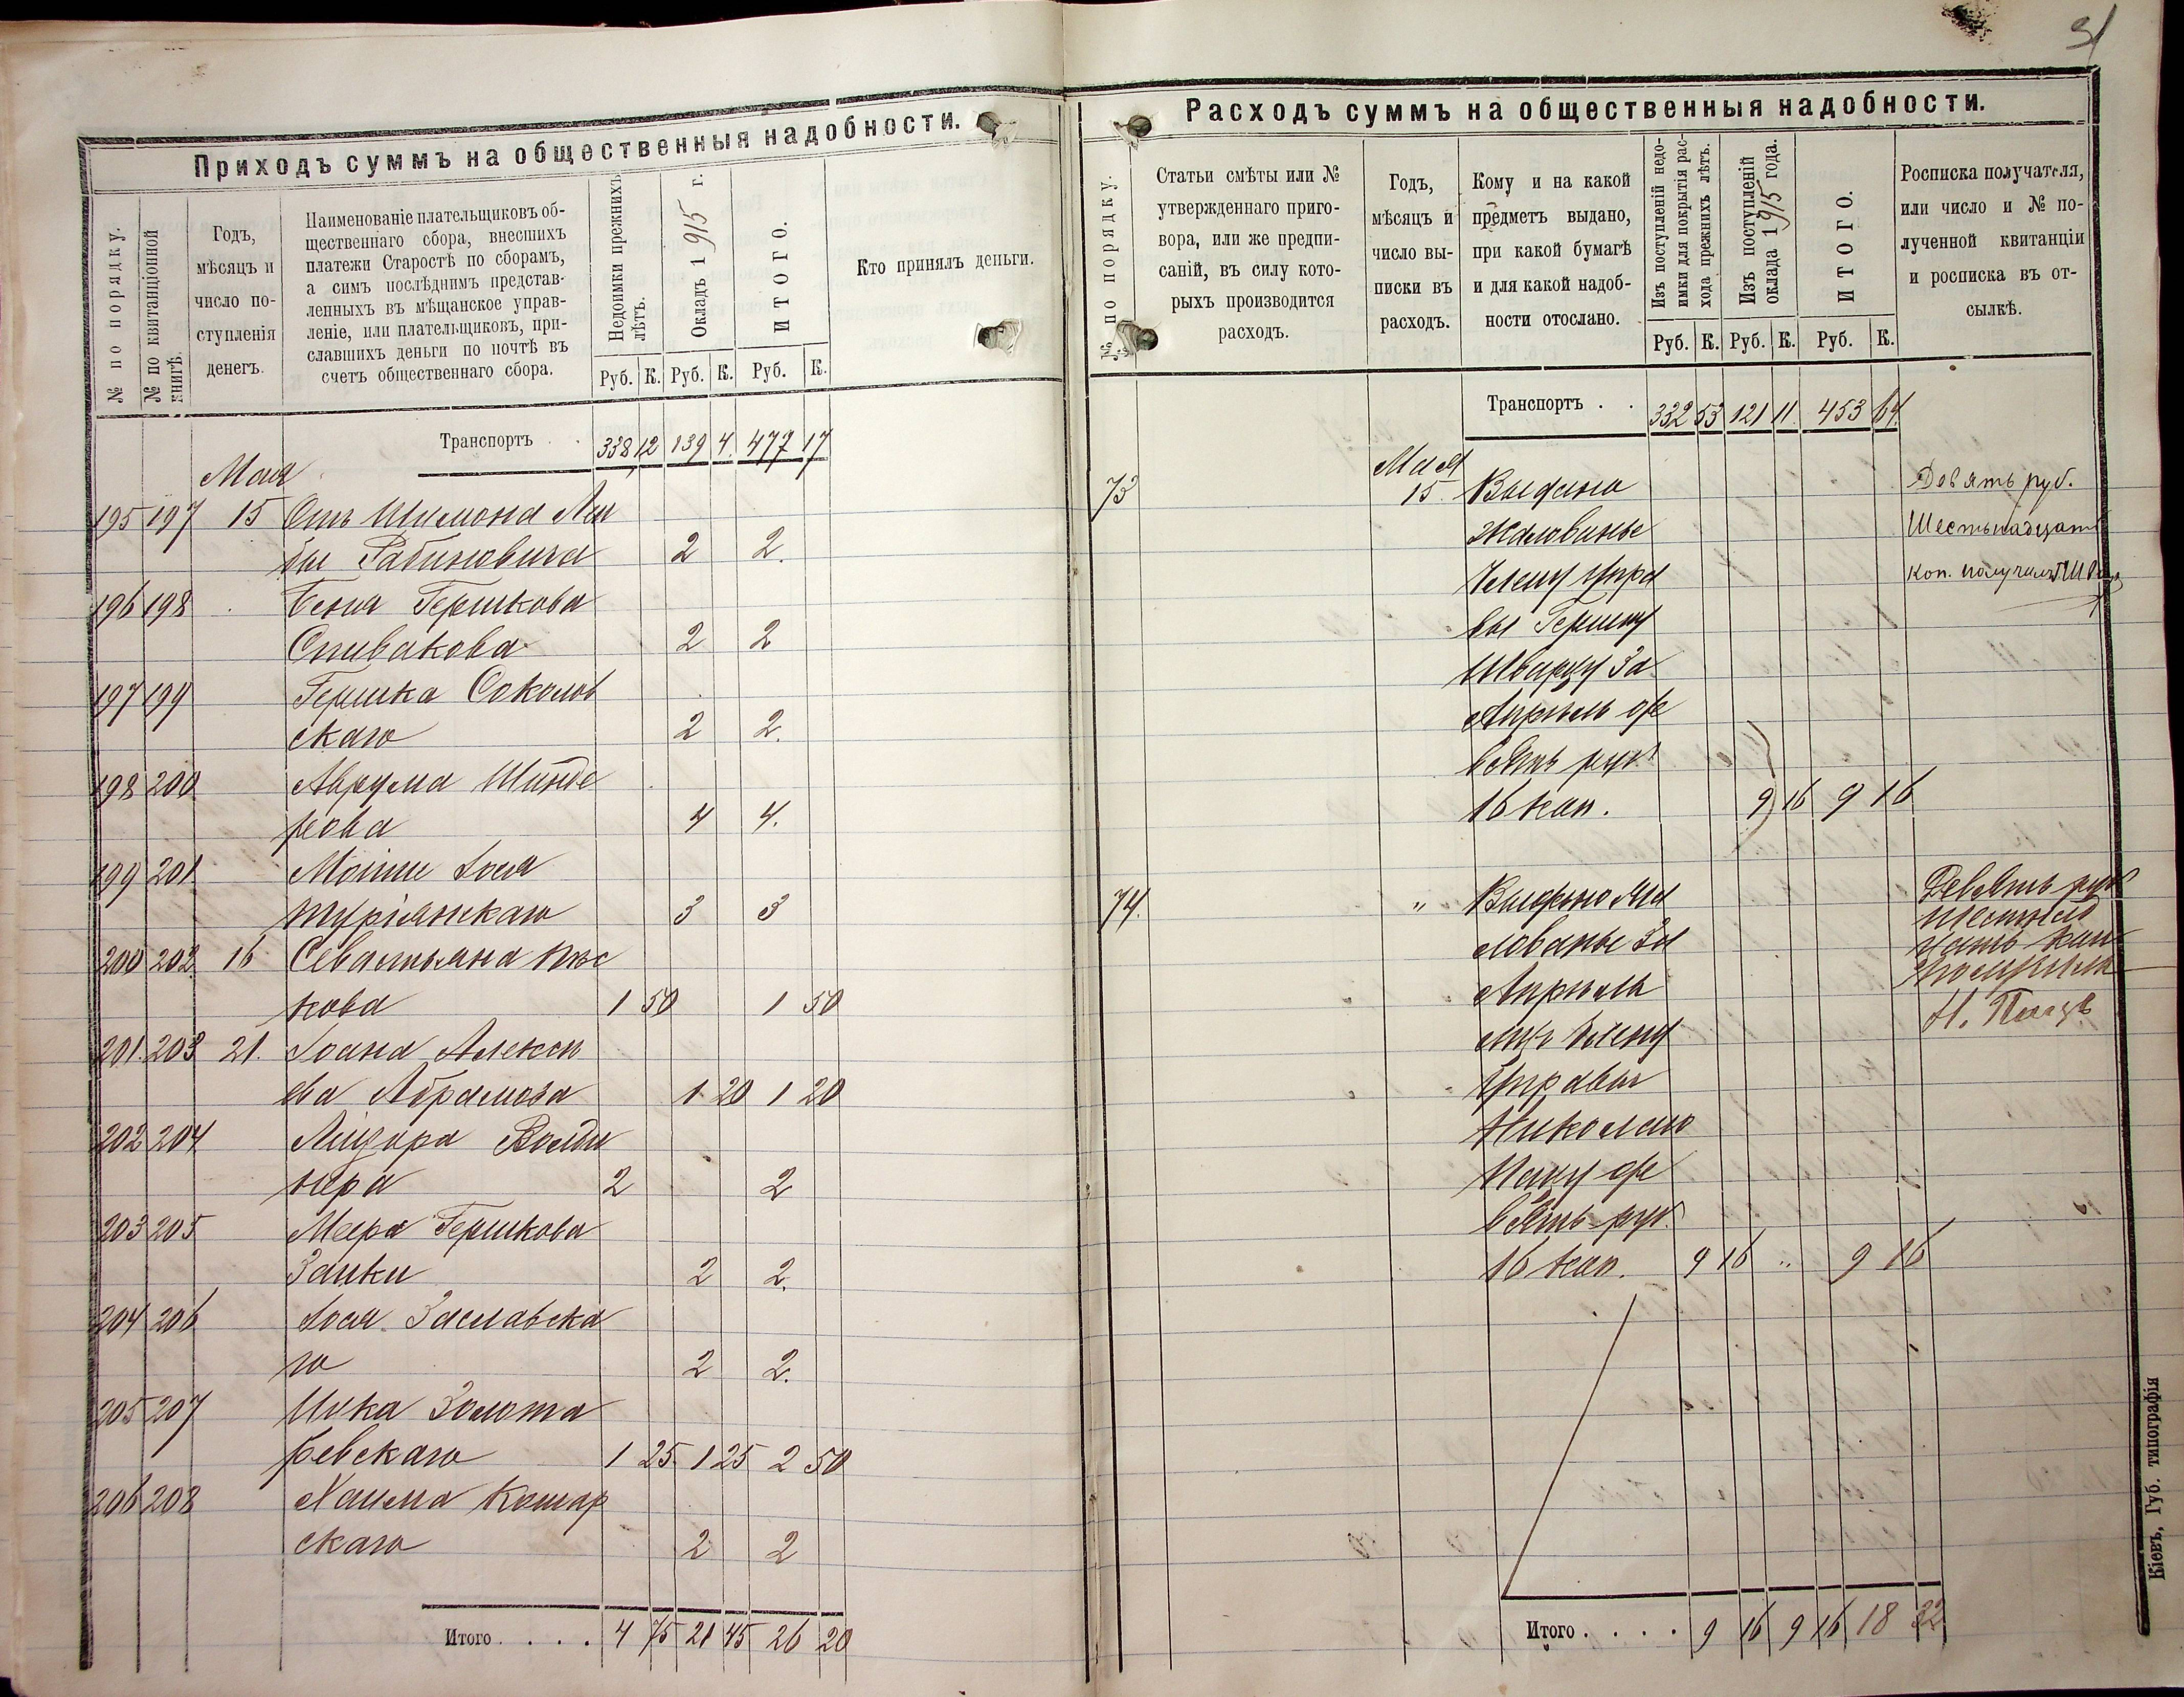 31
Приходъ суммъ на общественныя надобности.
№ по порядку.
№ по квитанціонной
книгѣ.
Годъ,
мѣсяцъ и
число по-
ступленія
денегъ.
Наименованіе плательщиковъ об-
щественнаго сбора, внесшихъ
платежи Старостѣ по сборамъ,
а симъ послѣднимъ представ-
ленныхъ въ мѣщанское управ-
леніе, или плательщиковъ, при-
славшихъ деньги по почтѣ въ
счетъ общественнаго сбора.
Недоимки прежнихъ
лѣтъ.
Окладъ 1915 г.
ИТОГО.
Кто принялъ деньги.
Руб. К. Руб. К. Руб. К.
Транспортъ . . 338 12 139 4. 477 17
Мая
195 197 15 Отъ Шимона Лей
бы Рабиновича 2 2.
196 198 Беня Гершкова
Спивакова 2 2
197 199 Гершка Соколов
скаго 2 2.
198 200 Аврума Шинде
рова 4 4.
199 201 Мошки Іося
Турianскаго 3 3
200 202 16 Севастьяна
кова 1 50 1 50
201. 203 21. Іоана Алексѣ
ева Абрамова 1 20 1 20
202 204 Лейзора
нера 2 2
203 205 Меера Гершкова
Заики 2 2.
204 206 Іося Заславска
го 2 2.
205 207 Ицка Золота
ревскаго 1 25 1 25 2 50
206 208 Хаима Комар
скаго 2 2
Итого . . . . 4 75 21 45 26 20
Расходъ суммъ на общественныя надобности.
№ по порядку.
Статьи смѣты или №
утвержденнаго приго-
вора, или же предпи-
саній, въ силу кото-
рыхъ производится
расходъ.
Годъ,
мѣсяцъ и
число вы-
писки въ
расходъ.
Кому и на какой
предметъ выдано,
при какой бумагѣ
и для какой надоб-
ности отослано.
Изъ поступленій недо-
имки для покрытія рас-
хода прежнихъ лѣтъ.
Изъ поступленій
оклада 1915 года.
ИТОГО.
Росписка получателя,
или число и № по-
лученной квитанціи
и росписка въ от-
сылкѣ.
Руб. К. Руб. К. Руб. К.
Транспортъ . . 332 53 121 11. 453 64.
Мая
73 15 Выдано Девять руб.
жалованье Шестьнадцать
Члену Упра коп. получилъ
вы Гершку
Шварцу за
Апрѣль де
вять руб.
16 коп. 9 16 9 16
74. " Выдано жа Девять руб
лованье за шестнад
Апрѣль цать коп
мц. Члену получилъ
Управы Н. Пацъ
Николаю
Пацу де
вять руб.
16 коп. 9 16 " 9 16
Итого . . . . 9 16 9 16 18 32
Кіевъ, Губ. типографія